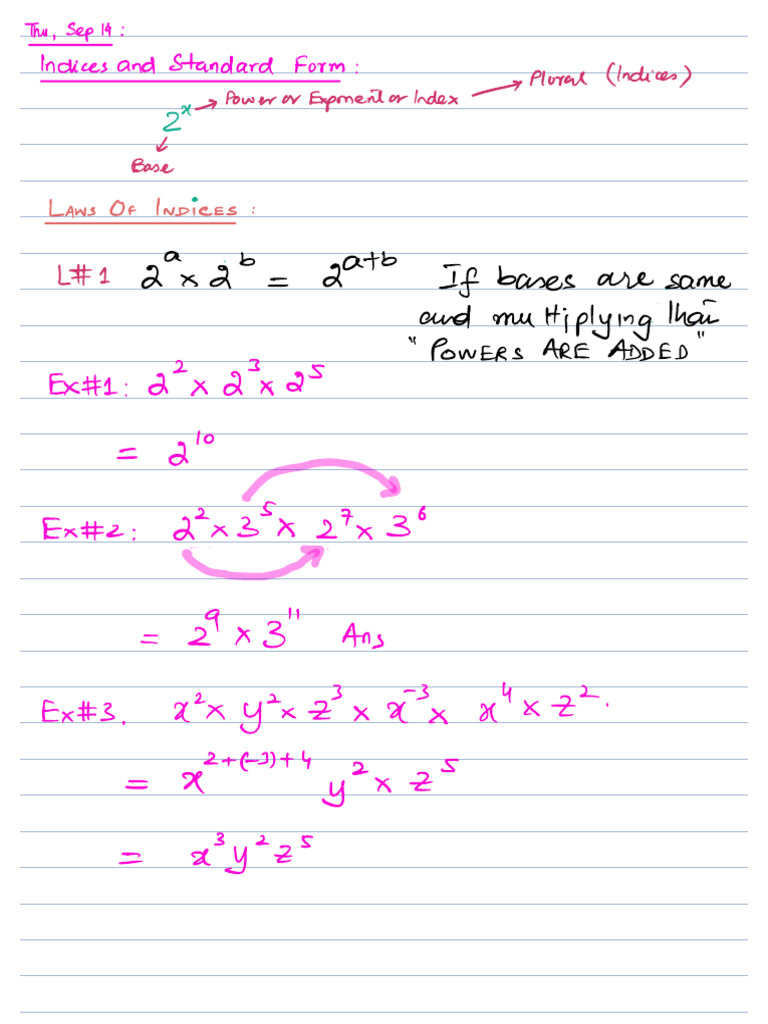 Thu, Sep 14:
Indices and Standard Form:
2ˣ → Power or Exponent or Index → Plural (Indices)
Base
LAWS OF INDICES:
L#1 2ᵃ × 2ᵇ = 2ᵃ⁺ᵇ If bases are same
and multiplying than
"POWERS ARE ADDED"
Ex#1: 2² × 2³ × 2⁵
= 2¹⁰
Ex#2: 2² × 3⁵ × 2⁷ × 3⁶
= 2⁹ × 3¹¹ Ans
Ex#3. x² × y² × z³ × x⁻³ × x⁴ × z².
= x²⁺⁽⁻³⁾⁺⁴ y² × z⁵
= x³y²z⁵